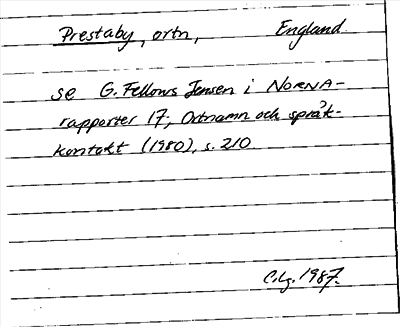 Prestaby, ortn, England.
se G. Fellows Jensen i NORNA-
rapporter 17, Ortnamn och språk-
kontakt (1980), s. 210.
C.Lg. 1987.